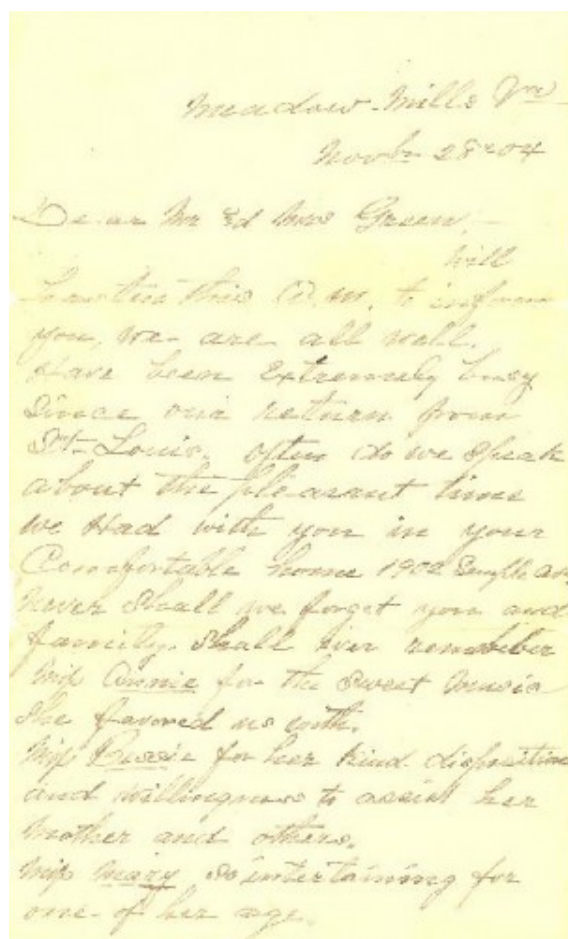 Meadow Mills Va
Novbr 28" 04
Dear Mr & Mrs Green,
Will
hasten this A.M. to inform
you, we are all well.
Have been Extremely busy
Since our return from
St. Louis. often do we Speak
about the pleasant time
we Had with you in your
Comfortable home 1902 Semple av,
never Shall we forget you and
family. Shall Ever remember
Miss Annie for the Sweet Music
She favored us with.
Miss Bessie for her Kind disposition
and willingness to assist her
Mother and others.
Miss Mary So intertaining for
one of her age.